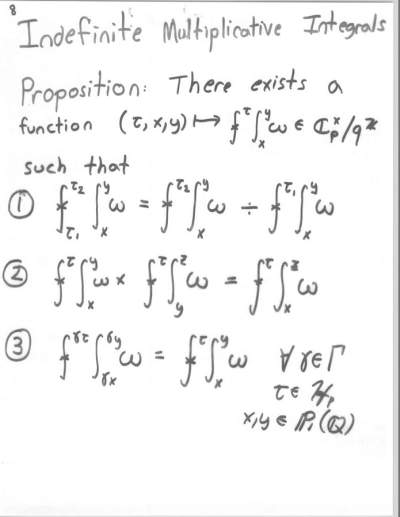 8
Indefinite Multiplicative Integrals
Proposition: There exists a
function (τ, x, y) ↦ ⨍^τ ∫_x^y ω ∈ ℂ_p^×/q^ℤ
such that
① ⨍_{τ₁}^{τ₂} ∫_x^y ω = ⨍^{τ₂} ∫_x^y ω ÷ ⨍^{τ₁} ∫_x^y ω
② ⨍^τ ∫_x^y ω × ⨍^τ ∫_y^z ω = ⨍^τ ∫_x^z ω
③ ⨍^{γτ} ∫_{γx}^{γy} ω = ⨍^τ ∫_x^y ω ∀ γ ∈ Γ
τ ∈ ℋ_p
x, y ∈ ℙ₁(ℚ)